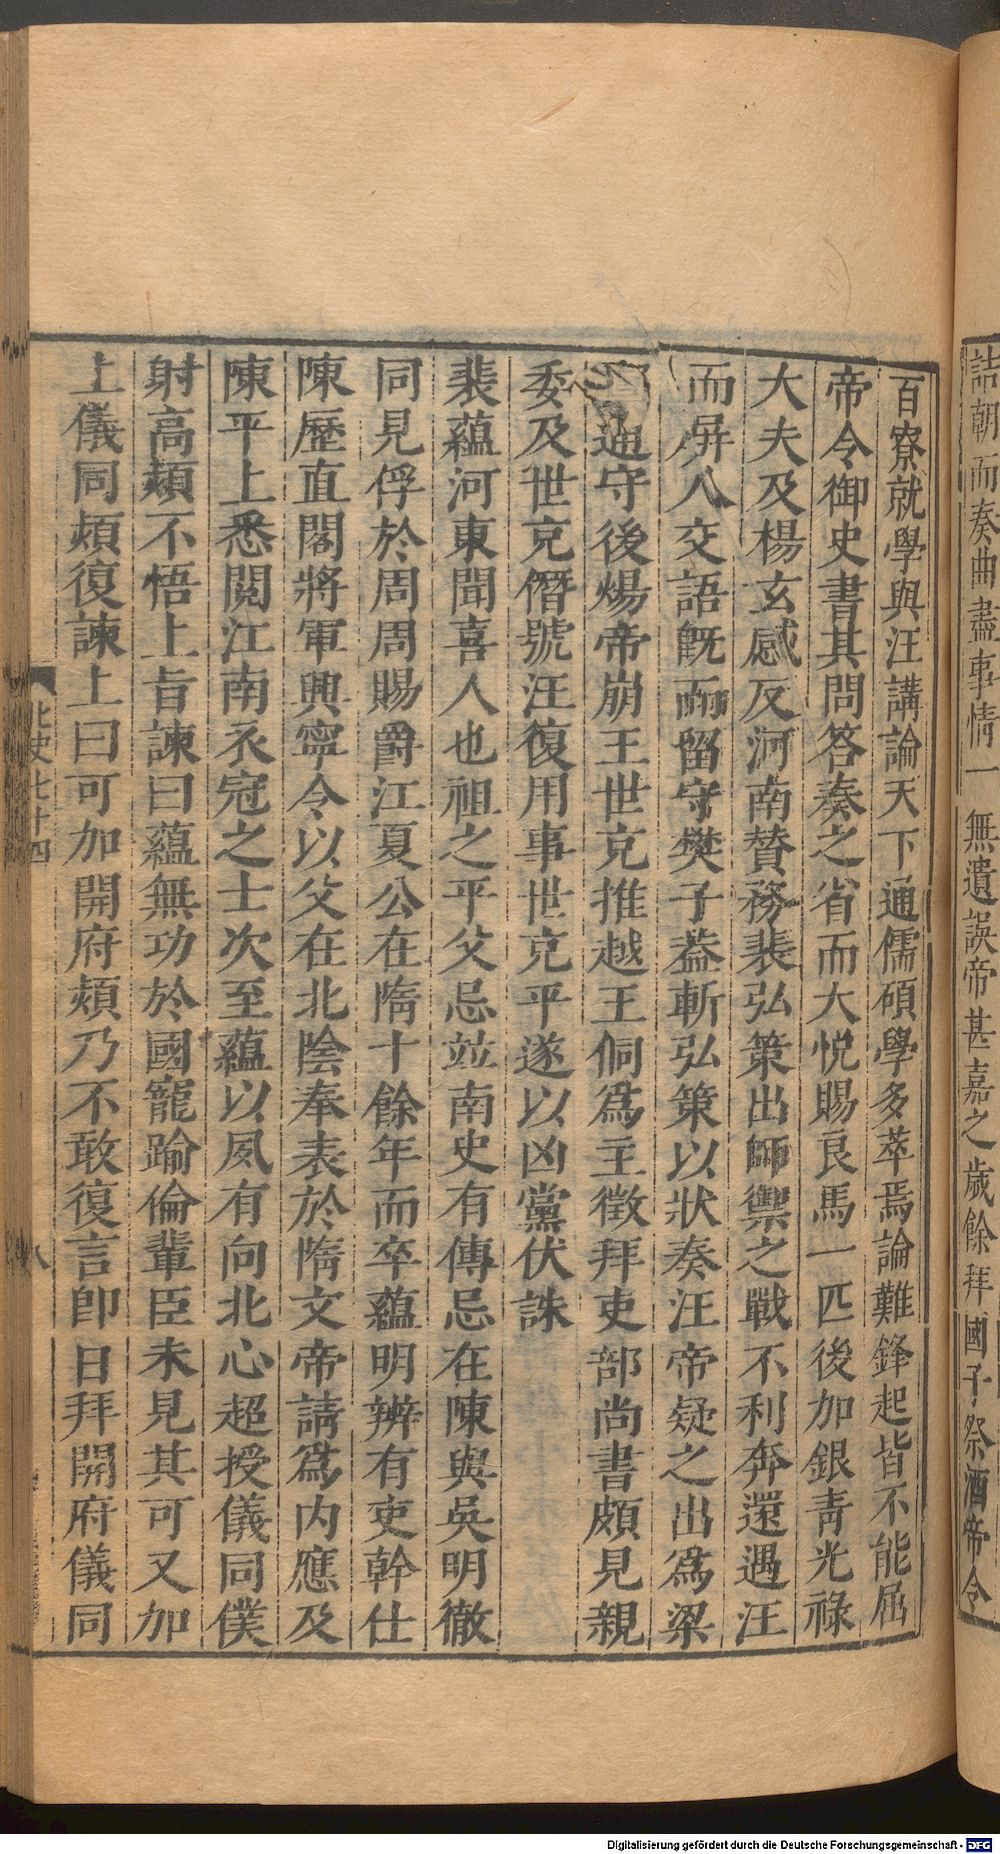 詰朝而奏曲盡事情一無遺誤帝甚嘉之歲餘拜國子祭酒帝令
百寮就學與汪講論天下通儒碩學多萃焉論難鋒起皆不能屈
帝令御史書其問答奏之省而大悅賜良馬一匹後加銀青光祿
大夫及楊玄感反河南贊務裴弘策出師禦之戰不利奔還遇汪
而屏人交語旣而留守樊子葢斬弘策以狀奏汪帝疑之出爲梁
通守後煬帝崩王世充推越王侗爲主徵拜吏部尚書頗見親
委及世充僭號汪復用事世充平遂以凶黨伏誅
裴蘊河東聞喜人也祖之平父忌竝南史有傳忌在陳與吳明徹
同見俘於周周賜爵江夏公在隋十餘年而卒蘊明辨有吏幹仕
陳歷直閣將軍興寧令以父在北陰奉表於隋文帝請爲內應及
陳平上悉閱江南衣冠之士次至蘊以夙有向北心超授儀同僕
射高熲不悟上旨諫曰蘊無功於國寵踰倫輩臣未見其可又加
上儀同熲復諫上曰可加開府熲乃不敢復言卽日拜開府儀同
北史七十四
八
Digitalisierung gefördert durch die Deutsche Forschungsgemeinschaft - DFG